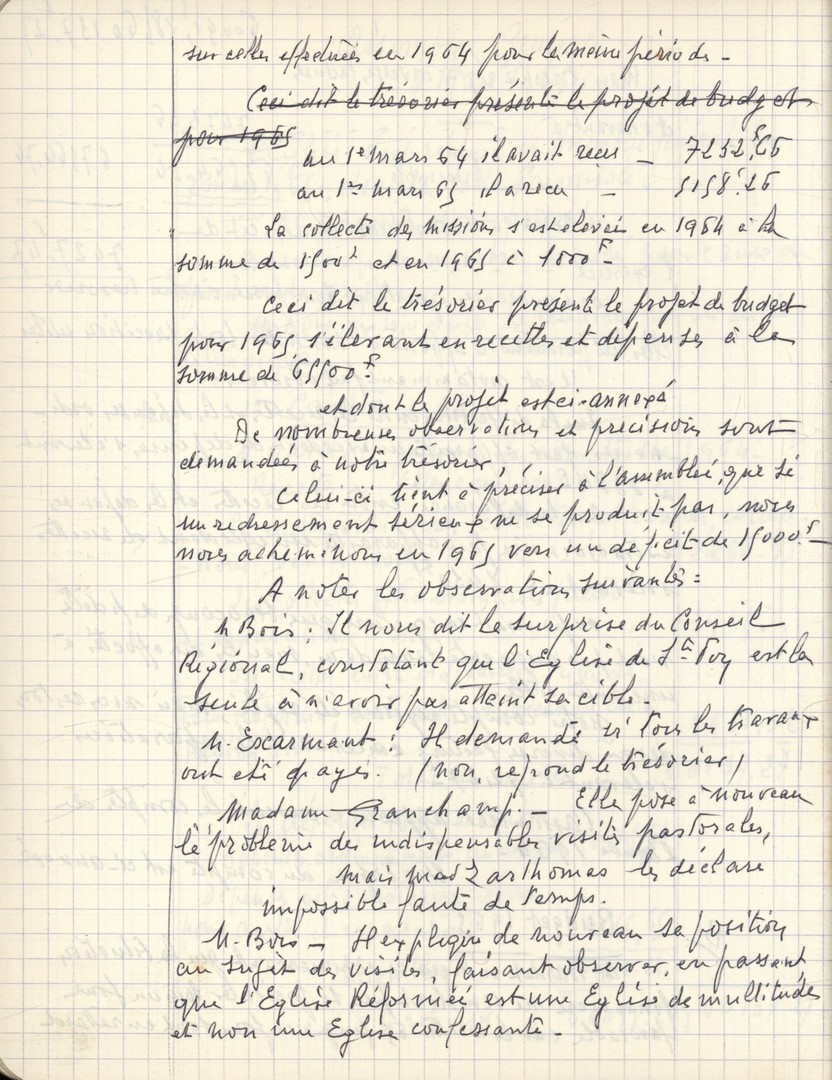 sur celles effectuées en 1964 pour la même période -
Ceci dit le trésorier présente le projet de budget
pour 1965
au 1e mars 64 il avait recu — 7232F,66
au 1er mars 65 il a recu — 5158F,26
La collecte des missions s'est elevée en 1964 à la
somme de 1500F et en 1965 à 1000F -
Ceci dit le trésorier présente le projet de budget
pour 1965 s'élevant en recettes et depenses à la
somme de 65500F
et dont le projet est ci-annexé
De nombreuses observations et precisions sont
demandées à notre trésorier,
Celui-ci tient à préciser à l'assemblée, que si
un redressement sérieux ne se produit pas, nous
nous acheminons en 1965 vers un déficit de 15000F -
A noter les observations suivantes =
M Bois : Il nous dit la surprise du Conseil
Régional, constatant que l'Eglise de St Voy est la
seule à n'avoir pas atteint sa cible.
M. Escarmant : Il demande si tous les travaux
ont été payés. (non, repond le trésorier)
Madame Granchamp. — Elle pose à nouveau
le problème des indispensables visites pastorales,
mais les déclare
impossible faute de temps.
M. Bois — Il explique de nouveau sa position
au sujet des visites, faisant observer, en passant
que l'Eglise Réformée est une Eglise de multitudes
et non une Eglise confessante -